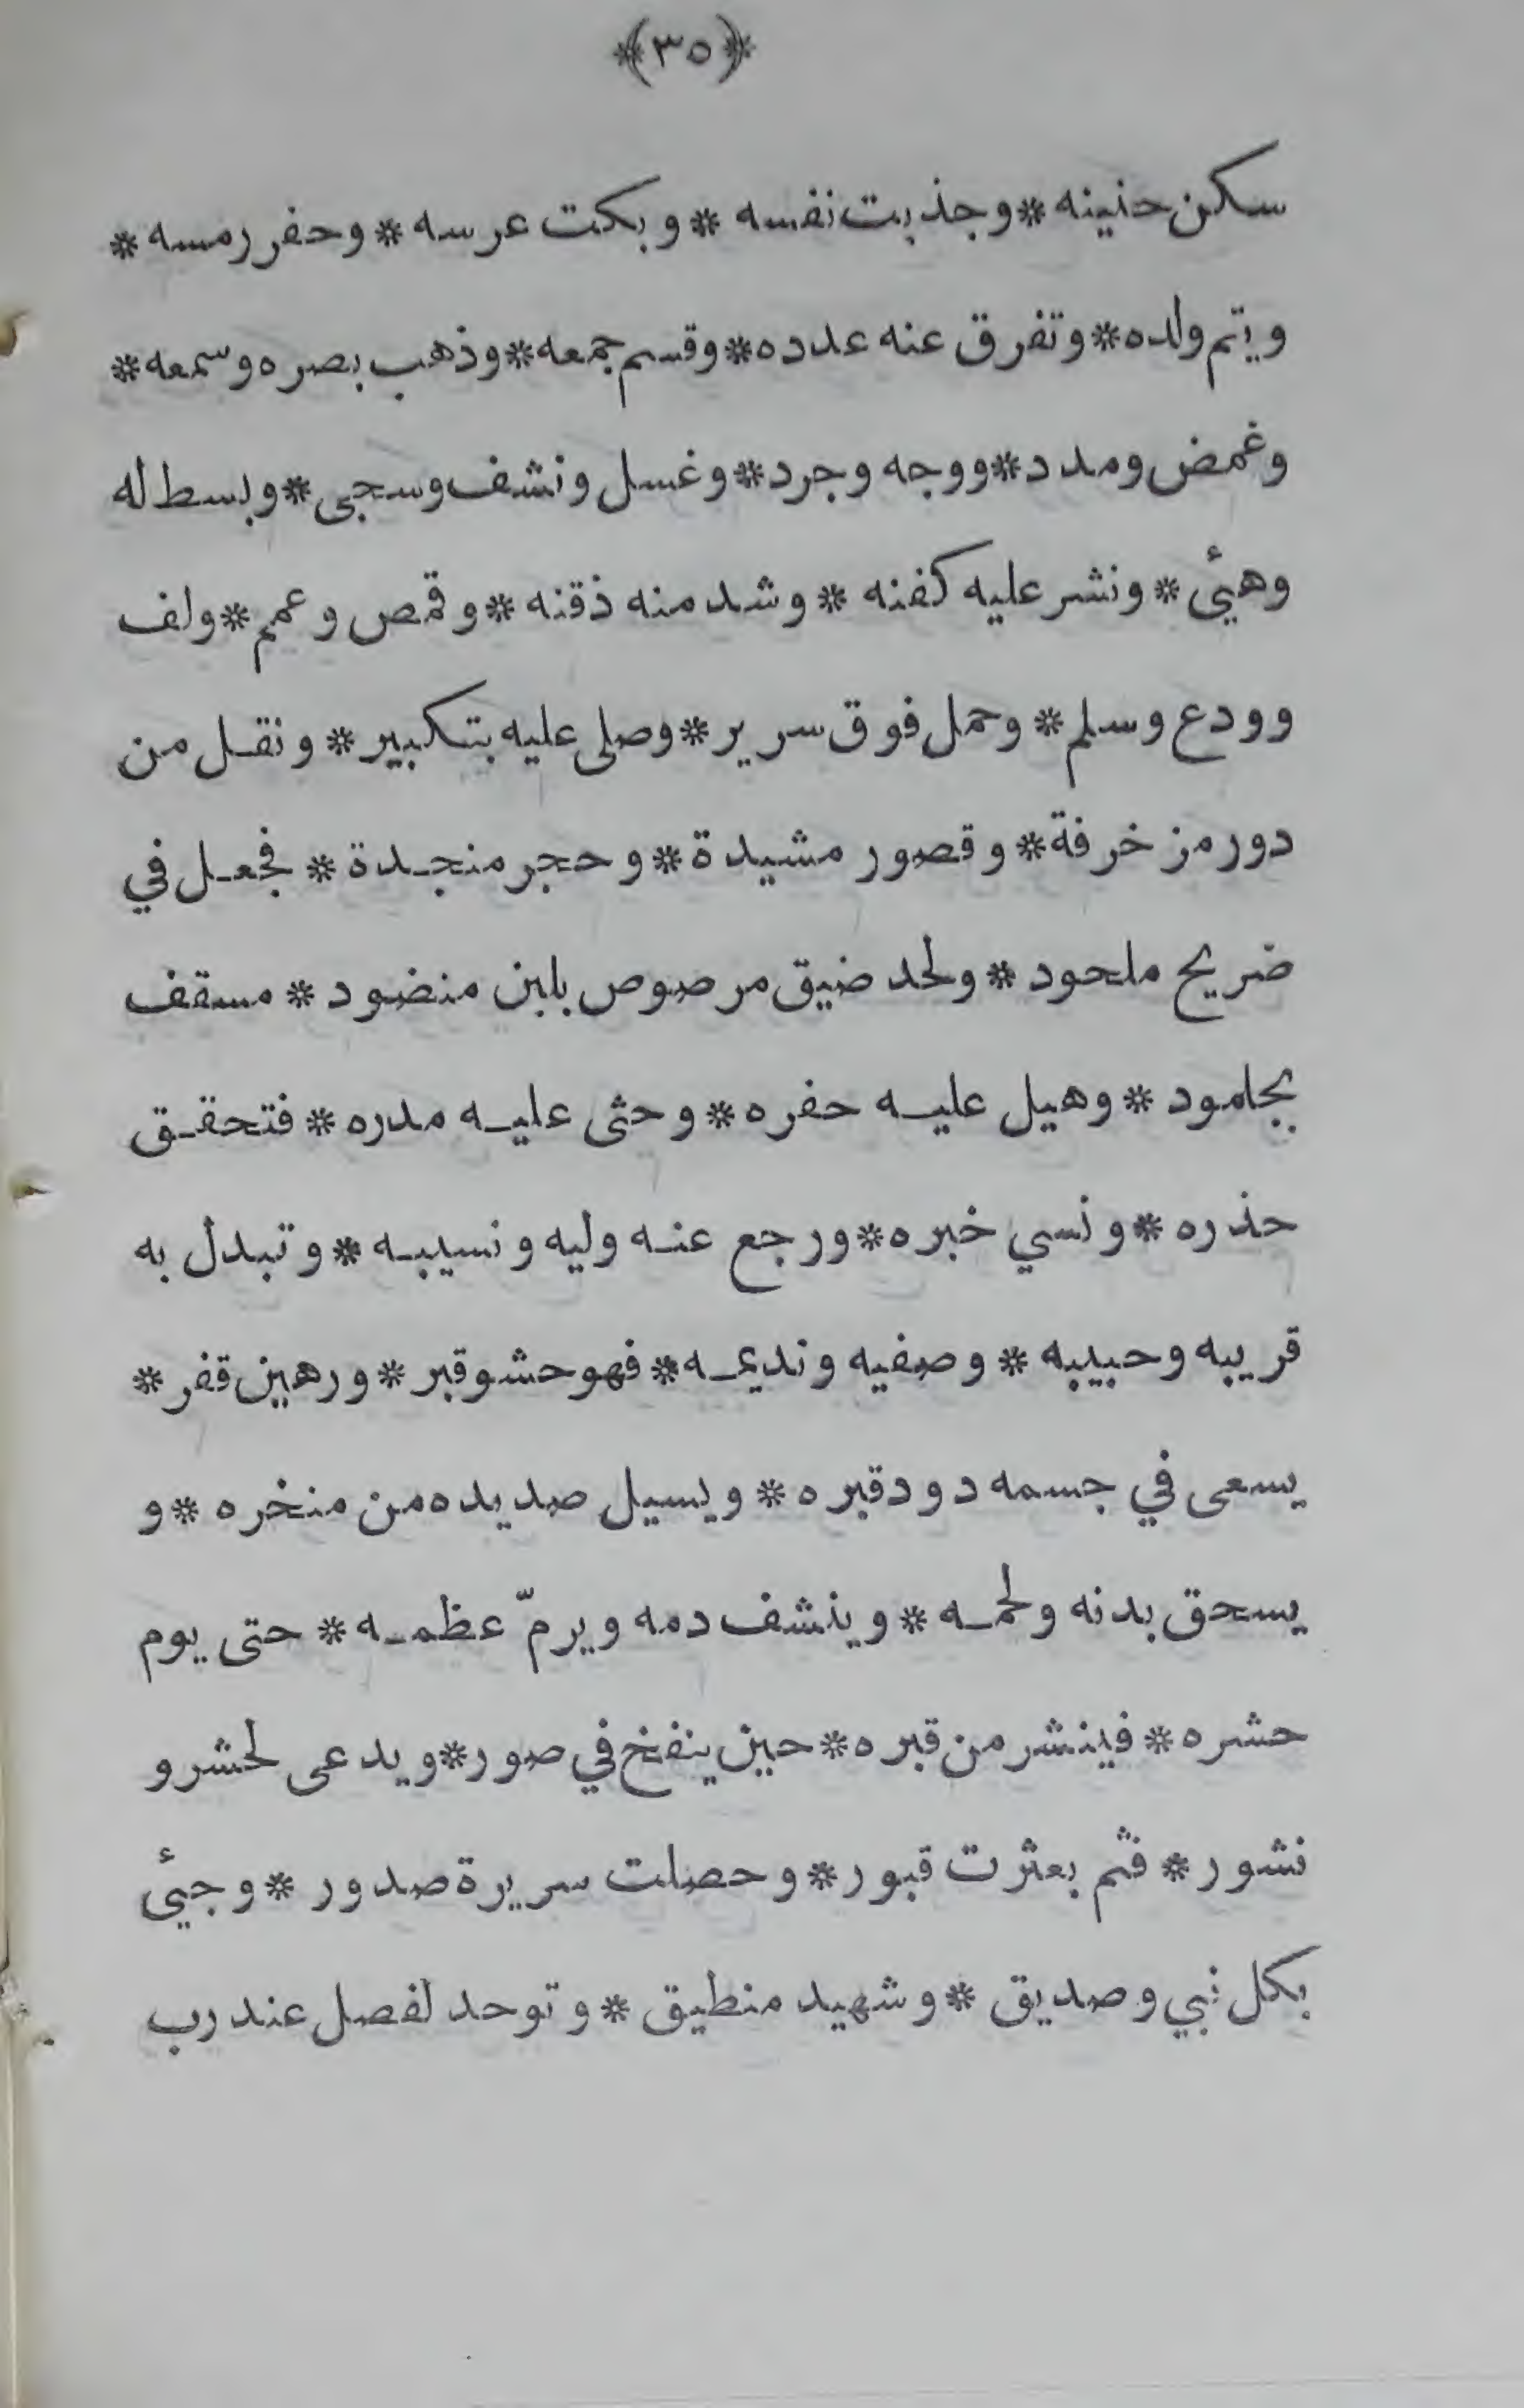 ﴿٣٥﴾
سكن حنينه * وجذبت نفسه * وبكت عرسه * وحفر رمسه *
ويتم ولده * وتفرق عنه عدده * وقسم جمعه * وذهب بصره وسمعه *
وغمض ومدد * ووجه وجرد * وغسل ونشف وسجى * وبسط له
وهيئ * ونشر عليه كفنه * وشد منه ذقنه * وقمص وعمم * ولف
وودع وسلم * وحمل فوق سرير * وصلى عليه بتكبير * ونقل من
دور مزخرفة * وقصور مشيدة * وحجر منجدة * فجعل في
ضريح ملحود * ولحد ضيق مرصوص بلبن منضود * مسقف
بجلمود * وهيل عليه حفره * وحثى عليه مدره * فتحقق
حذره * ونسي خبره * ورجع عنه وليه ونسيبه * وتبدل به
قريبه وحبيبه * وصفيه ونديمه * فهو حشو قبر * ورهين قفر *
يسعى في جسمه دود قبره * ويسيل صديده من منخره * و
يسحق بدنه ولحمه * وينشف دمه ويرمّ عظمه * حتى يوم
حشره * فينشر من قبره * حين ينفخ في صور * ويدعى لحشر و
نشور * فثم بعثرت قبور * وحصلت سريرة صدور * وجيئ
بكل نبي وصديق * وشهيد منطيق * وتوحد لفصل عند رب